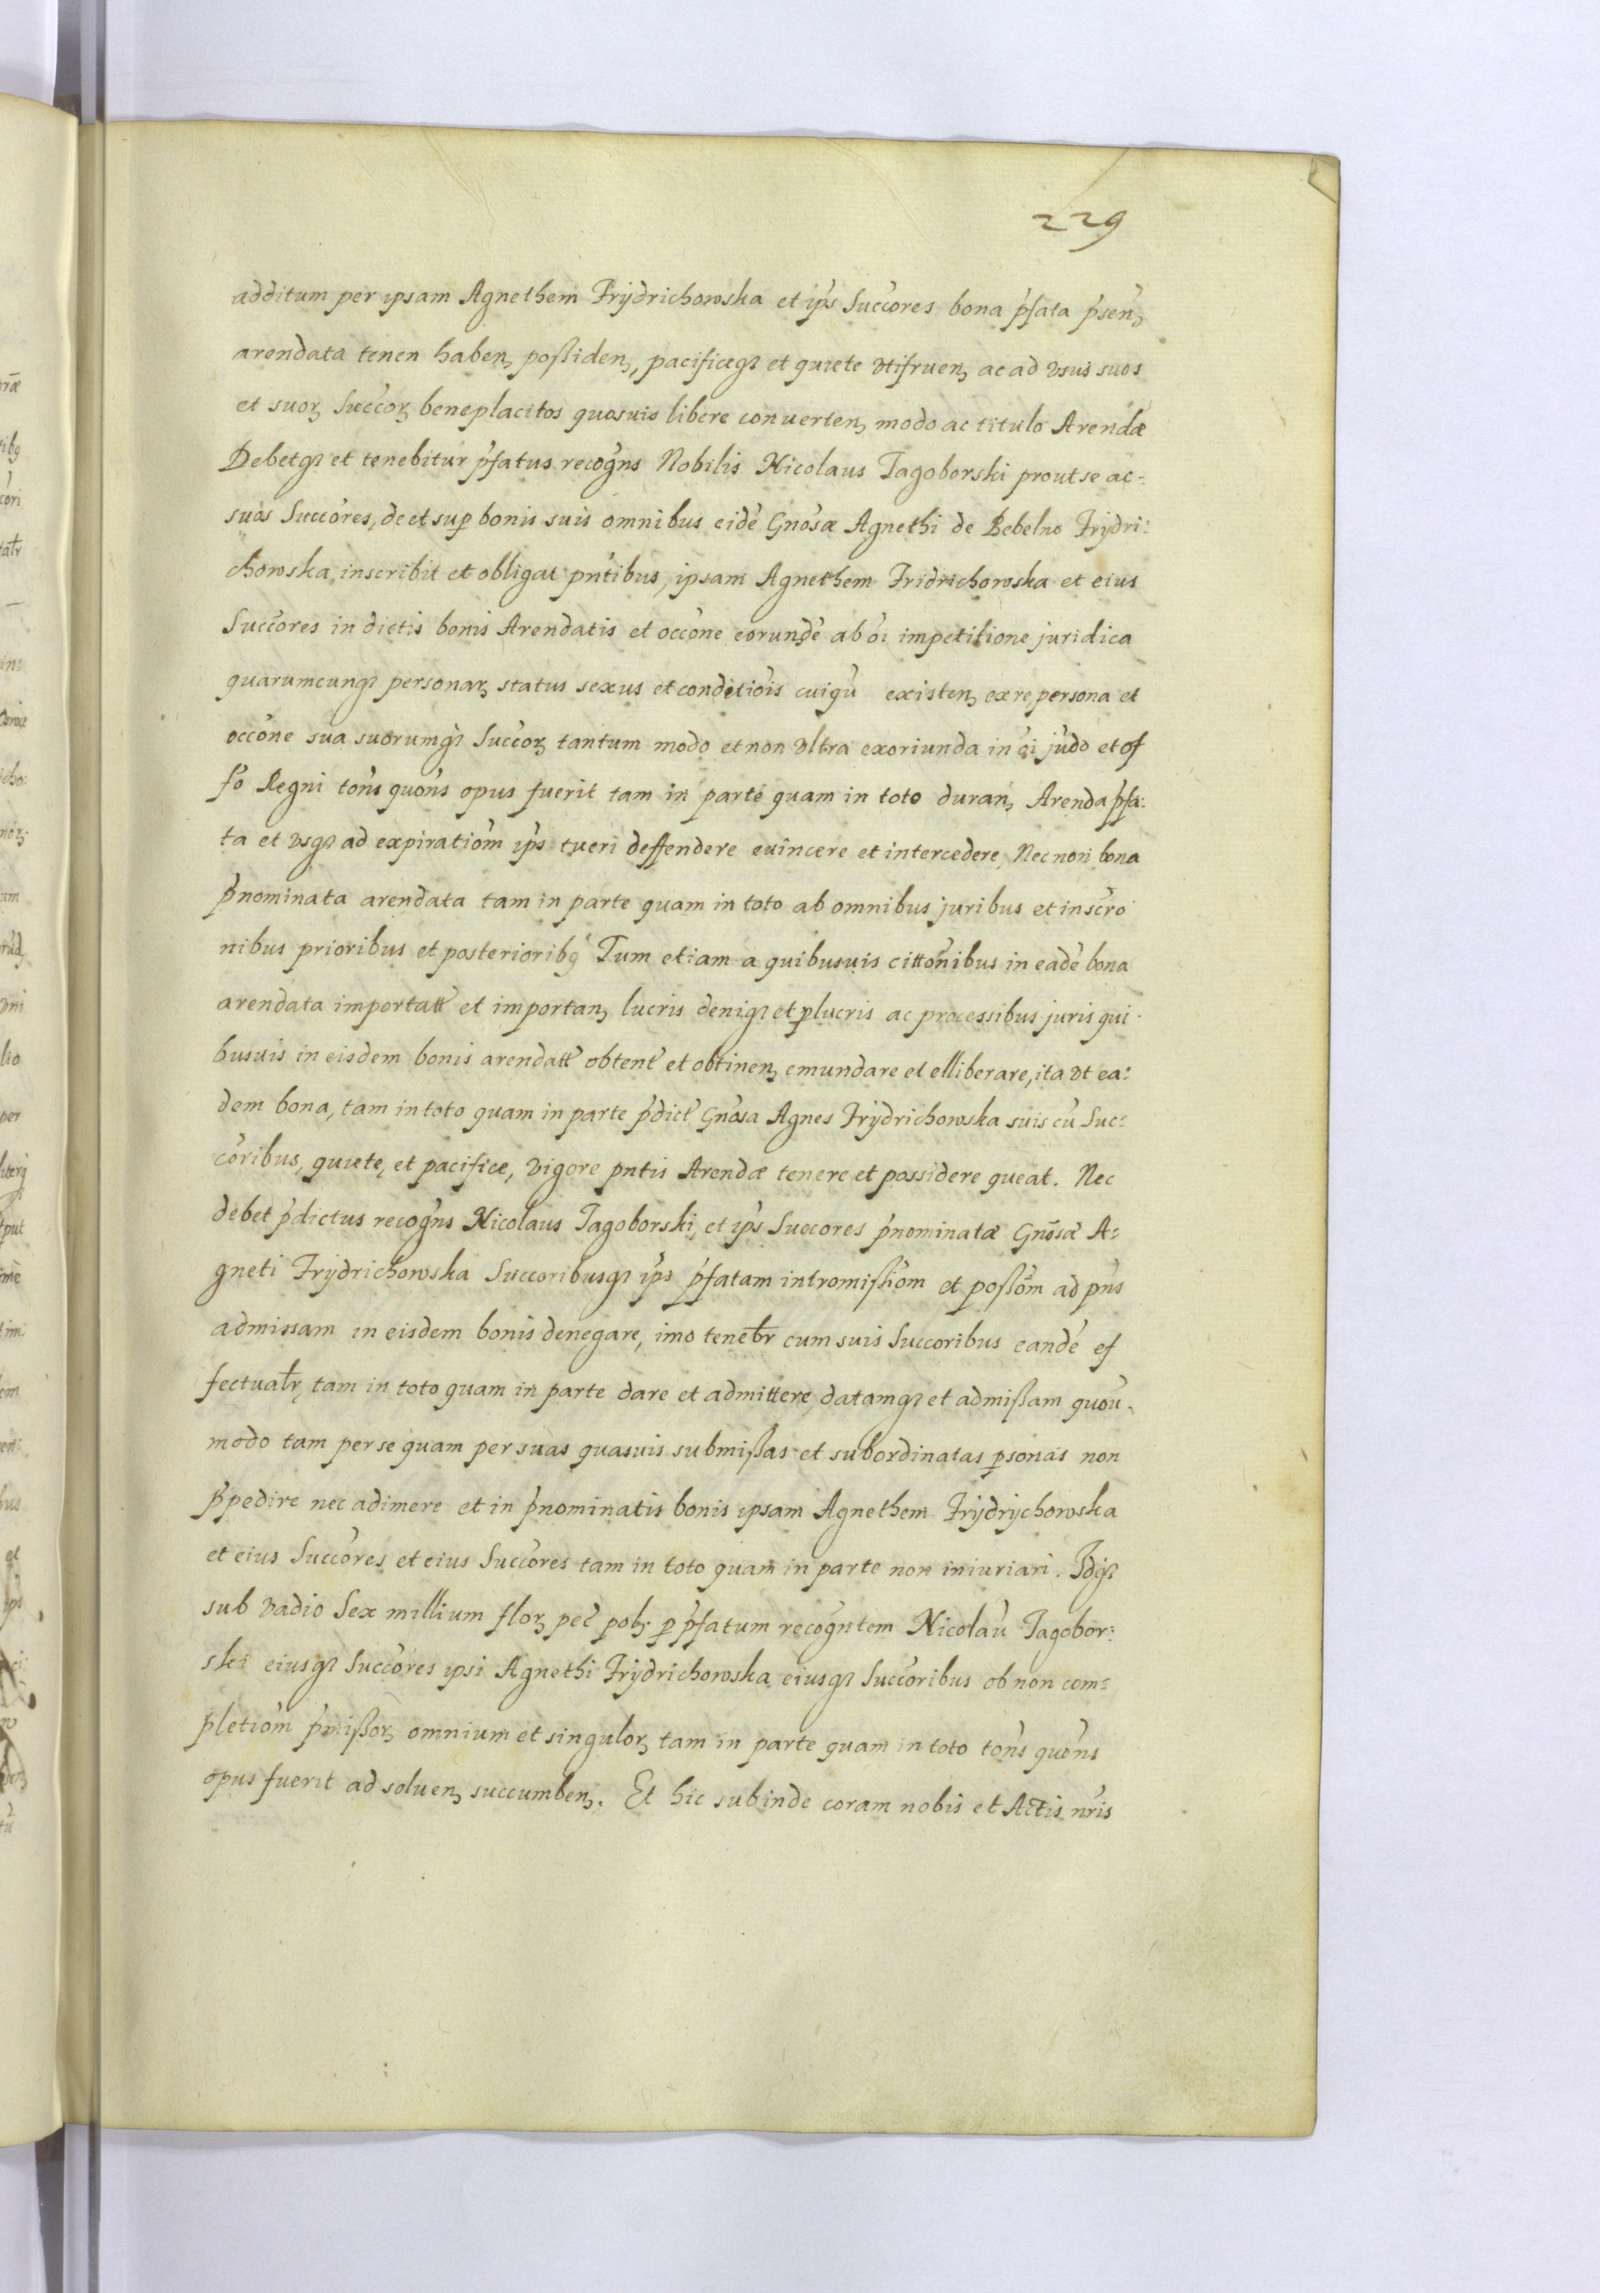 229
additum per ipsam Agnethem Frydrichowska et ip̃s Succ̃ores bona p̃fata p̃senʒ
arendata tenen habenʒ poſsidenʒ, pacificeqʒ et quiete vtifruenʒ ac ad vsus suos
et suorʒ Succ̃orʒ beneplacitos quosuis libere conuertenʒ modo ac titulo Arendæ
Debetqʒ et tenebitur p̃fatus recog̃ns Nobilis Nicolaus Jagoborski prout se ac-
suos Succ̃ores, de et sup bonis suis omnibus eidẽ Gnõsæ Agnethi de Bebelno Frydri:
chowska, inscribit et obligat pñtibus, ipsam Agnethem Fridrichowska et eius
Succ̃ores in dictis bonis Arendatis et occ̃one eorundẽ ab õi impetitione juridica
quarumcunqʒ personarʒ status sexus et conditiõis cuiqũ existenʒ ex re persona et
occ̃one sua suorumqʒ Succ̃orʒ tantum modo et non vltra exoriunda in õi jũdo et of
fõ Regni tõns quõns opus fuerit tam in parte quam in toto duranʒ Arenda p̃fa:
ta et vsqʒ ad expiratiõm ip̃s tueri deffendere euincere et intercedere, Nec non bona
p̃nominata arendata tam in parte quam in toto ab omnibus juribus et inscr̃o
nibus prioribus et posterioribq̃ Tum etiam a quibusuis cittõnibus in eadẽ bona
arendata importatt̃ et importanʒ lucris deniqʒ et plucris ac processibus juris qui-
busuis in eisdem bonis arendatt̃ obtent̃ et obtinenʒ emundare et elliberare, ita vt ea:
dem bona, tam in toto quam in parte p̃dict̃ Gnõsa Agnes Frydrichowska suis cũ Suc:
c̃oribus, quiete, et pacifice, vigore pñtis Arendæ tenere et possidere queat. Nec
debet p̃dictus recog̃ns Nicolaus Jagoborski, et ip̃s Succores p̃nominatæ Gnõsæ A:
gneti Frydrichowska Succoribusqʒ ip̃s p̃fatam intromiſsiõm et poſsõm ad pñs
admissam in eisdem bonis denegare, imo tenebr̃ cum suis Succoribus eandẽ ef
fectualr̃, tam in toto quam in parte dare et admittere, datamqʒ et admiſsam quoũ-
modo tam per se quam per suas quasuis submiſsas et subordinatas psonas non
p̃pedire nec adimere et in p̃nominatis bonis ipsam Agnethem Frydrychowska
et eius Succ̃ores et eius Succ̃ores tam in toto quam in parte non iniuriari. Idqʒ
sub vadio Sex millium florʒ pec̃ polʒ p p̃fatum recog̃ntem Nicolaũ Jagobor:
ski eiusqʒ Succ̃ores ipsi Agnethi Frydrichowska eiusqʒ Succ̃oribus ob non com:
pletiõm p̃miſsorʒ omnium et singulorʒ tam in parte quam in toto tõns quõns
opus fuerit ad soluenʒ succumbenʒ. Et hic subinde coram nobis et Actis nr̃is